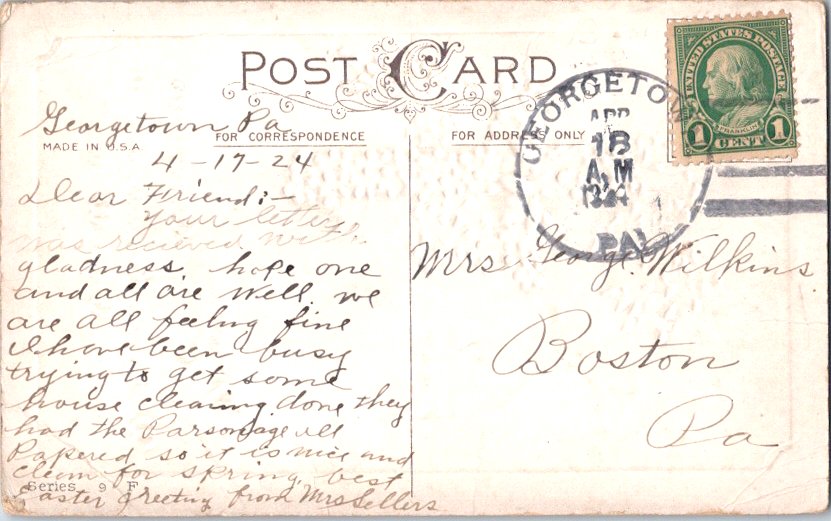 POST CARD
Georgetown Pa
FOR CORRESPONDENCE
MADE IN U.S.A.
4-17-24
Dear Friend:-
Your letter
was recieved with
gladness. hope one
and all are well. we
are all feeling fine
I have been busy
trying to get some
house cleaning done they
had the Parsonage all
Papered so it is nice and
clean for spring. best
Easter greeting from Mrs Sellers
Series 9 F
FOR ADDRESS ONLY
GEORGETOWN
APR
18
A.M
1924
PA.
UNITED STATES POSTAGE
FRANKLIN
1 CENT 1
Mrs George Wilkins
Boston
Pa